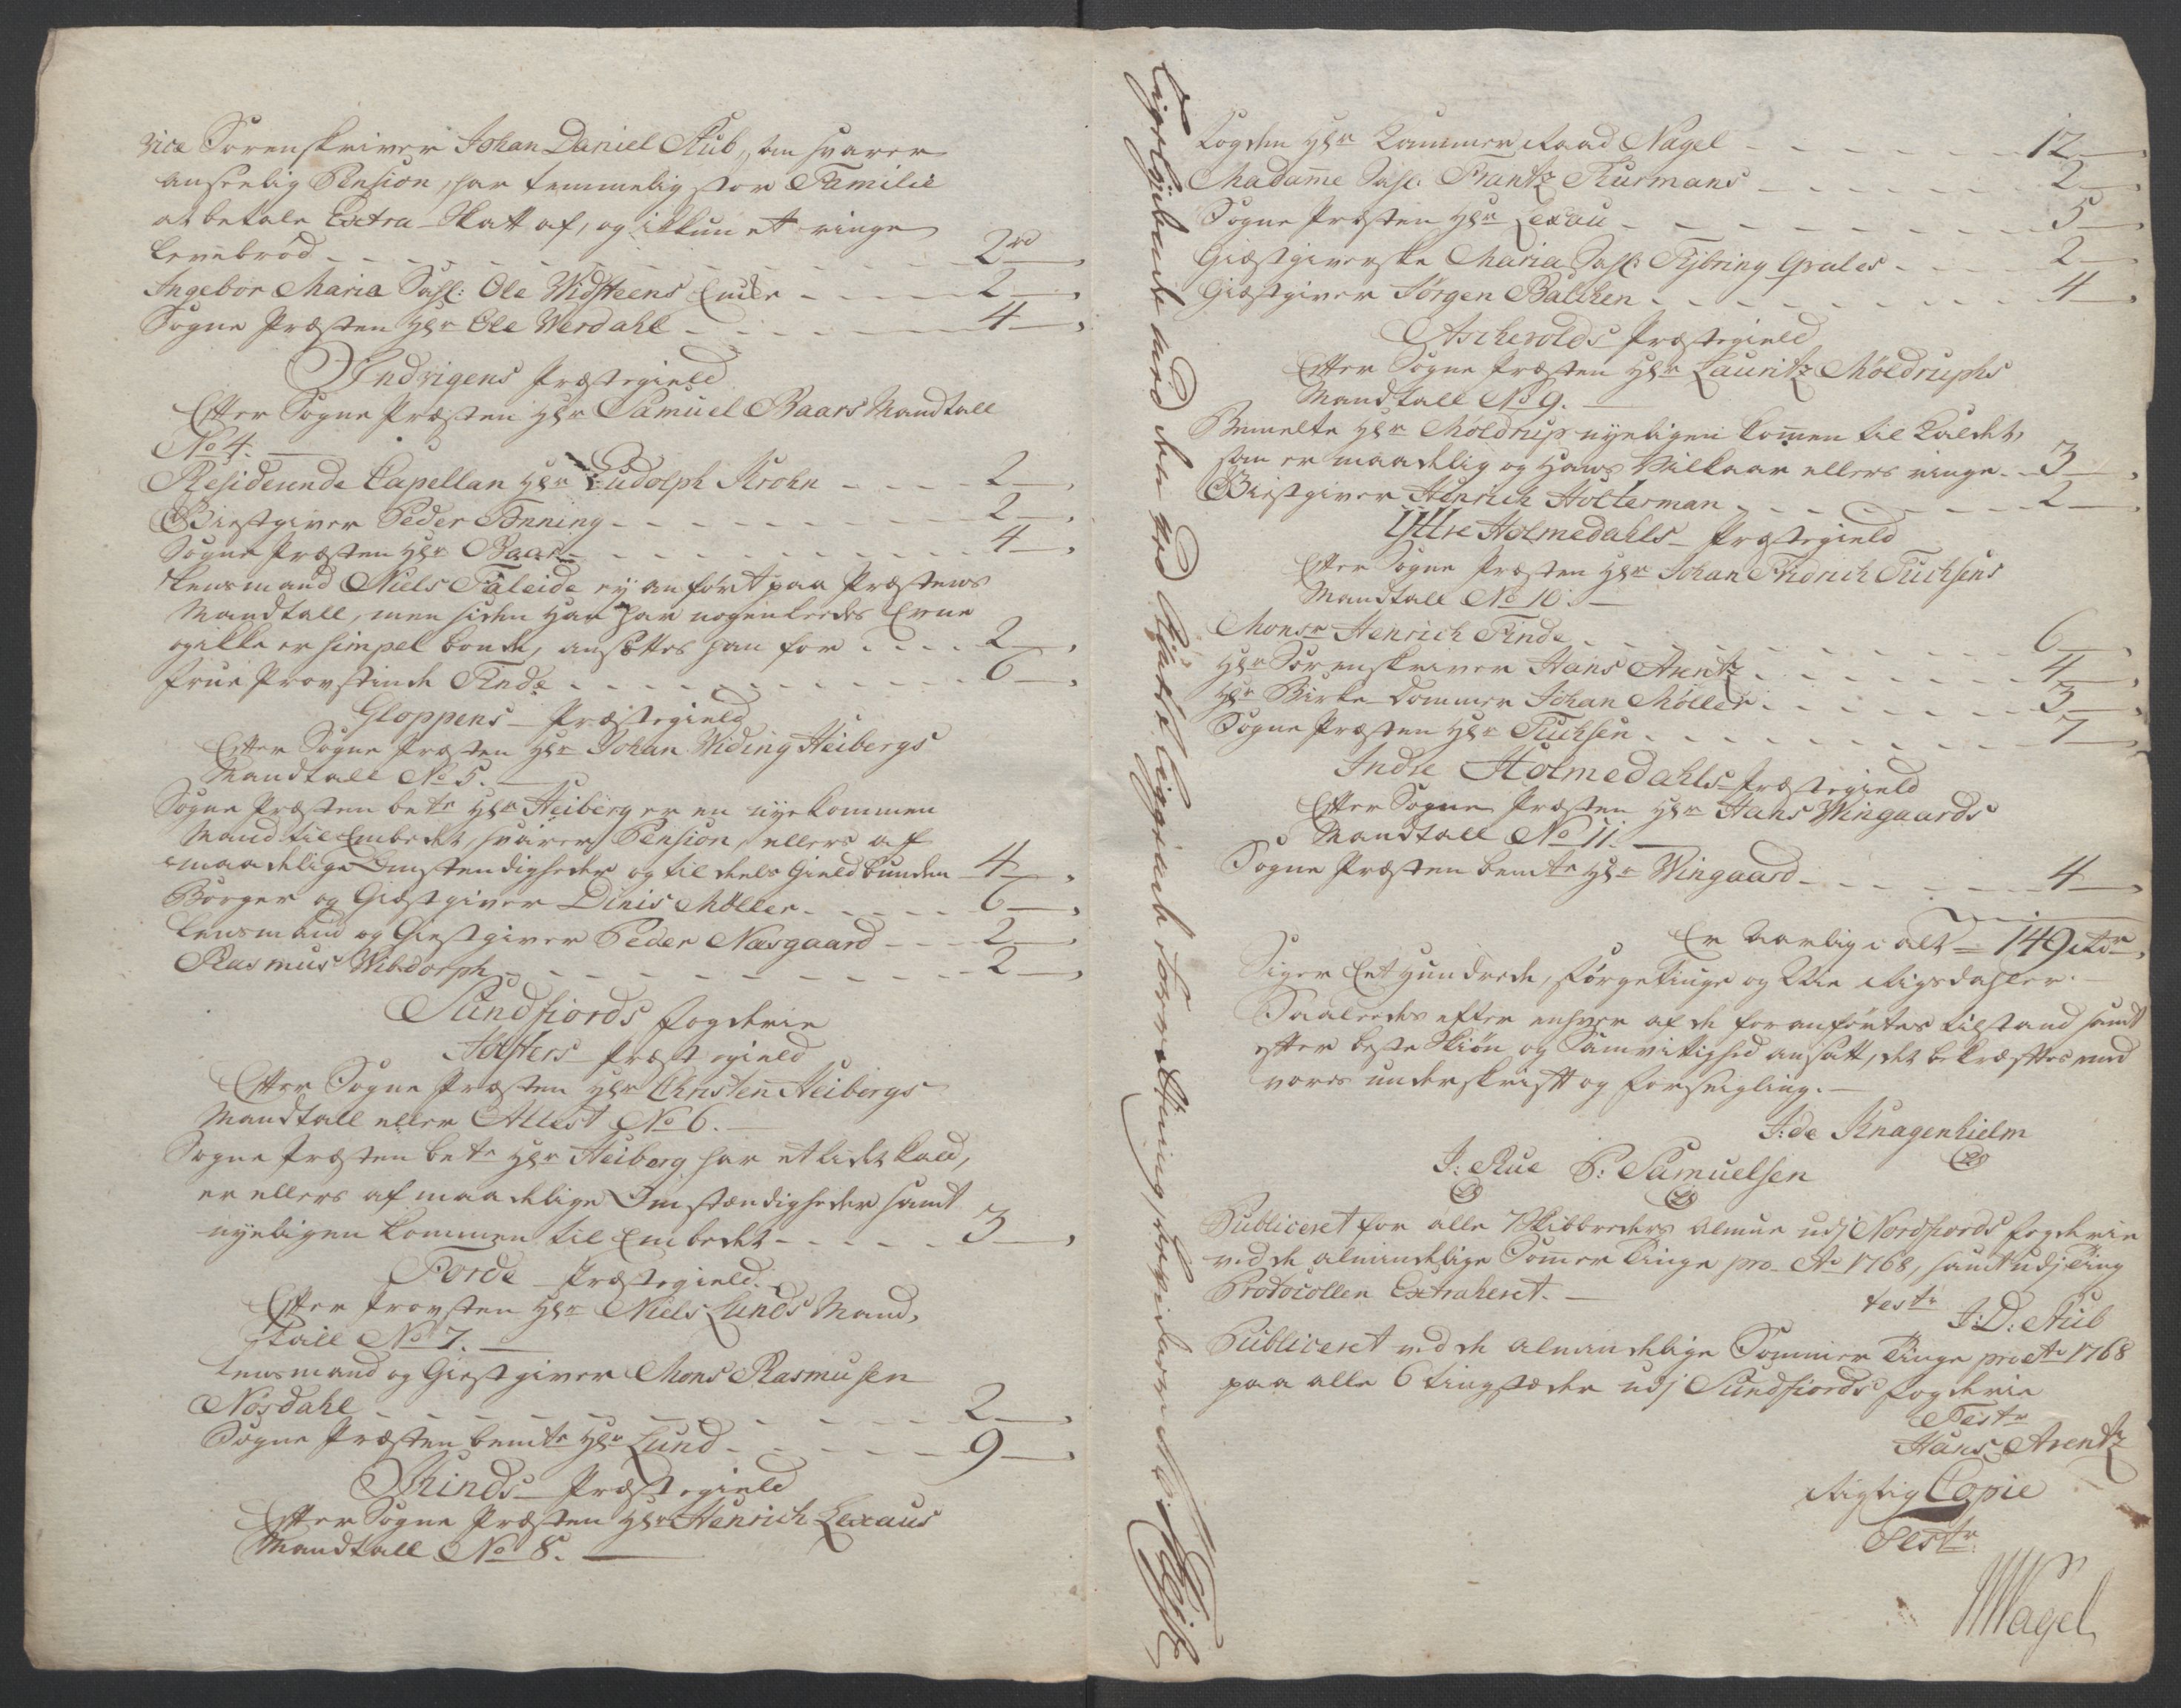 vice Sorenskriver Johan Daniel Stub, som svarer
anseelig Pension, har temmelig stor Familie
at betale Extra Skatt af, og ikkun et ringe
Levebrød - - - 2 rd
Ingebor Maria Sahl: Ole Widsteens Encke - - - 2 -
Sogne Præsten Hr Ole Werdahl - - - 4 -
Indvigens Præstegield
Efter Sogne Præsten Hr Samuel Baars Mandtall
No 4.
Residerende Capellan Hr Ludolph Krohn - - - 2 -
Giestgiver Peder Tønning - - - 2 -
Sogne Præsten Hr Baar - - - 4 -
Lensmand Niels Faleide ey anført paa Præstens
Mandtall, men siden han har nogenledes Evne
og ikke er simpel bonde, ansættes han for - - - 2 -
Frue Provstinde Finde - - - 6 -
Gloppens Præstegield
Efter Sogne Præsten Hr Johan Widing Heibergs
Mandtall No 5.
Sogne Præsten bete Hr Heiberg er en nye kommen
Mand til Embedet, svarer Pension, ellers af
maadelige Omstendigheder og til deels Gieldbunden 4 -
Borger og Giestgiver Dinis Møller - - - 6 -
Lensmand og Giestgiver Peder Næsgaard - - - 2 -
Rasmus Wibdorph - - - 2 -
Sundfiords Fogderie
Jølsters Præstegield
Efter Sogne Præsten Hr Christen Heibergs
Mandtall eller Attest No 6.
Sogne Præsten bete Hr Heiberg har et lidet kald,
er ellers af maadelige Omstændigheder samt
nyeligen kommen til Embedet - - - 3 -
Førde Præstegield.
Efter Provsten Hr Niels Lunds Mand-
tall No 7.
Lensmand og Giestgiver Mons Rasmusen
Nøsdahl - - - 2 -
Sogne Præsten bemte Hr Lund - - - 9 -
Kinds Præstegield
Efter Sogne Præsten Hr Henrich Lexaus
Mandtall No 8.
Ligelydende med den ved Ligningens forretning, beviidner
Fogden Hr Kammer Raad Nagel - - - 12 -
Madame Sahl: Frantz Kurmans - - - 2 -
Sogne Præsten Hr Lexau - - - 5 -
Giæstgiverske Maria Sahl: Fybring - - - 2 -
Giæstgiver Jørgen Balchen - - - 4 -
Aschevolds Præstegield
Efter Sogne Præsten Hr Lauritz Møldruphs
Mandtall No 9.
Bemelte Hr Møldrup nyeligen kommen til Kaldet,
som er maadelig og hans Vilkaar ellers ringe - - 3 -
Giestgiver Henrich Holterman - - - 2 -
Yttre Holmedahls Præstegield
Efter Sogne Præsten Hr Johan Fridrich Tuchsens
Mandtall No 10.
Monsr Henrich Finde - - - 6 -
Hr Sorenskriver Hans Arentz - - - 4 -
Hr Birke Dommer Johan Møller - - - 3 -
Sogne Præsten Hr Tuchsen - - - 7 -
Indre Holmedahls Præstegield
Efter Sogne Præsten Hr Hans Wingaards
Mandtall No 11.
Sogne Præsten bemte Hr Wingaard - - - 4 -
Er Aarlig i alt = 149 rdr
Siger Eet Hundrede, førgetiuge og Nie Rigsdahler.
Saaledes efter enhver af de foranførtes tilstand samt
efter beste Skiøn og Samvittighed ansatt, det bekræftes med
vores underskrift og forseigling.
J: de Knagenhielm
J: Rue P: Samuelsen
Publiceret for alle 7 Skibbreders Almue udj Nordfiords Fogderie
ved de almindelige Sommer Tinge pro Ao 1768, samt udj Ting
Protocollen Extraheret.
teste
J: D: Stub
Publiceret ved de almindelige Sommer Tinge pro Ao 1768
paa alle 6 tingstæder udj Sundfiords Fogderie
Teste
Hans Arentz
Rigtig Copie
Teste
Nagel